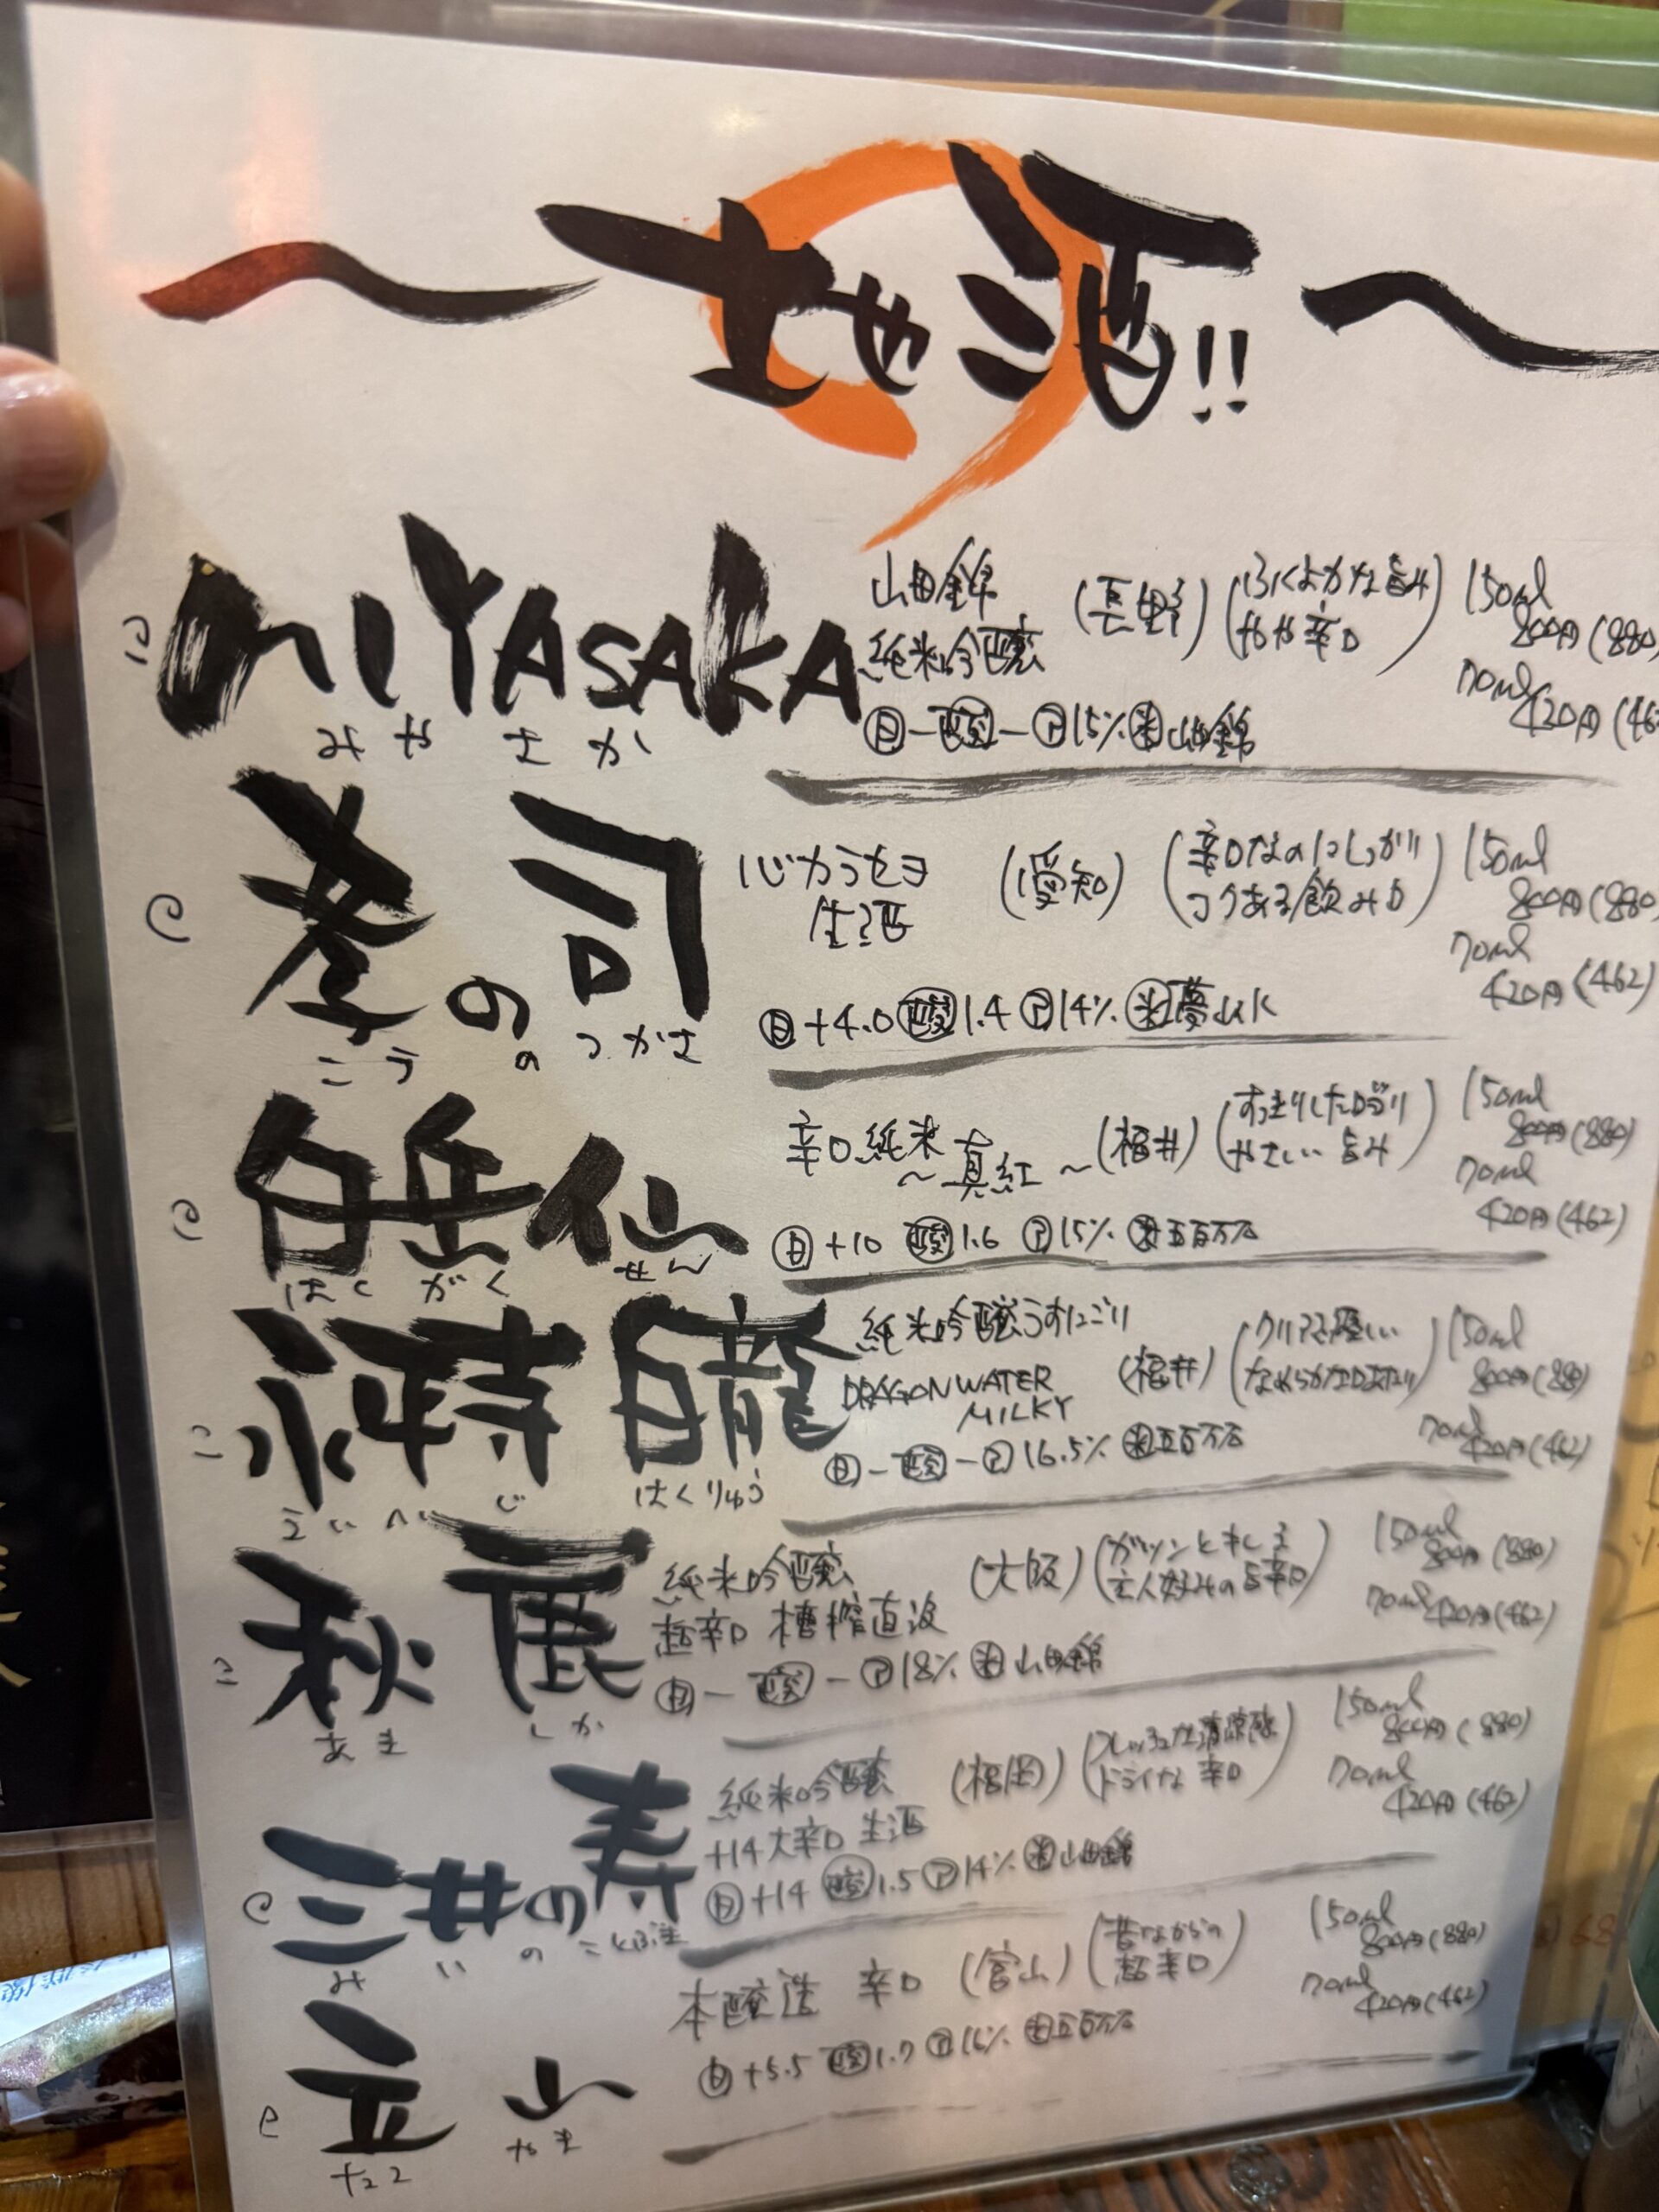 〜地酒!!〜
MIYASAKA
みやさか
山田錦
純米吟醸
(長野)
(ふくよかな旨み
やや辛口)
150ml
800円(880
70ml
420円(462
日 − 酸 − ア 15% 米 山田錦
孝の司
こう の つかさ
心カラセヨ
生酒
(愛知)
(辛口なのにしっかり
コクある飲み口)
150ml
800円(880
70ml
420円(462)
日 +4.0 酸 1.4 ア 14% 米 夢山水
白岳仙
はくがくせん
辛口純米
〜真紅〜
(福井)
(すっきりした口当り
やさしい旨み)
150ml
800円(880)
70ml
420円(462)
日 +10 酸 1.6 ア 15% 米 五百万石
永平寺白龍
えいへいじ はくりゅう
純米吟醸うすにごり
DRAGON WATER
MILKY
(福井)
(クリアで優しい
なめらかな口あたり)
150ml
800円(880)
70ml
420円(462)
日 − 酸 − ア 16.5% 米 五百万石
秋鹿
あき しか
純米吟醸
超辛口 槽搾直汲
(大阪)
(ガツンとキレる
主人好みの旨辛口)
150ml
800円(880)
70ml
420円(462)
日 − 酸 − ア 18% 米 山田錦
三井の寿
み い の ことぶき
純米吟醸
+14 大辛口 生酒
(福岡)
(フレッシュな清涼感
ドライな辛口)
150ml
800円(880)
70ml
420円(462)
日 +14 酸 1.5 ア 14% 米 山田錦
立山
たて やま
本醸造 辛口
(富山)
(昔ながらの
超辛口)
150ml
800円(880)
70ml
420円(462)
日 +5.5 酸 1.7 ア 16% 米 五百万石